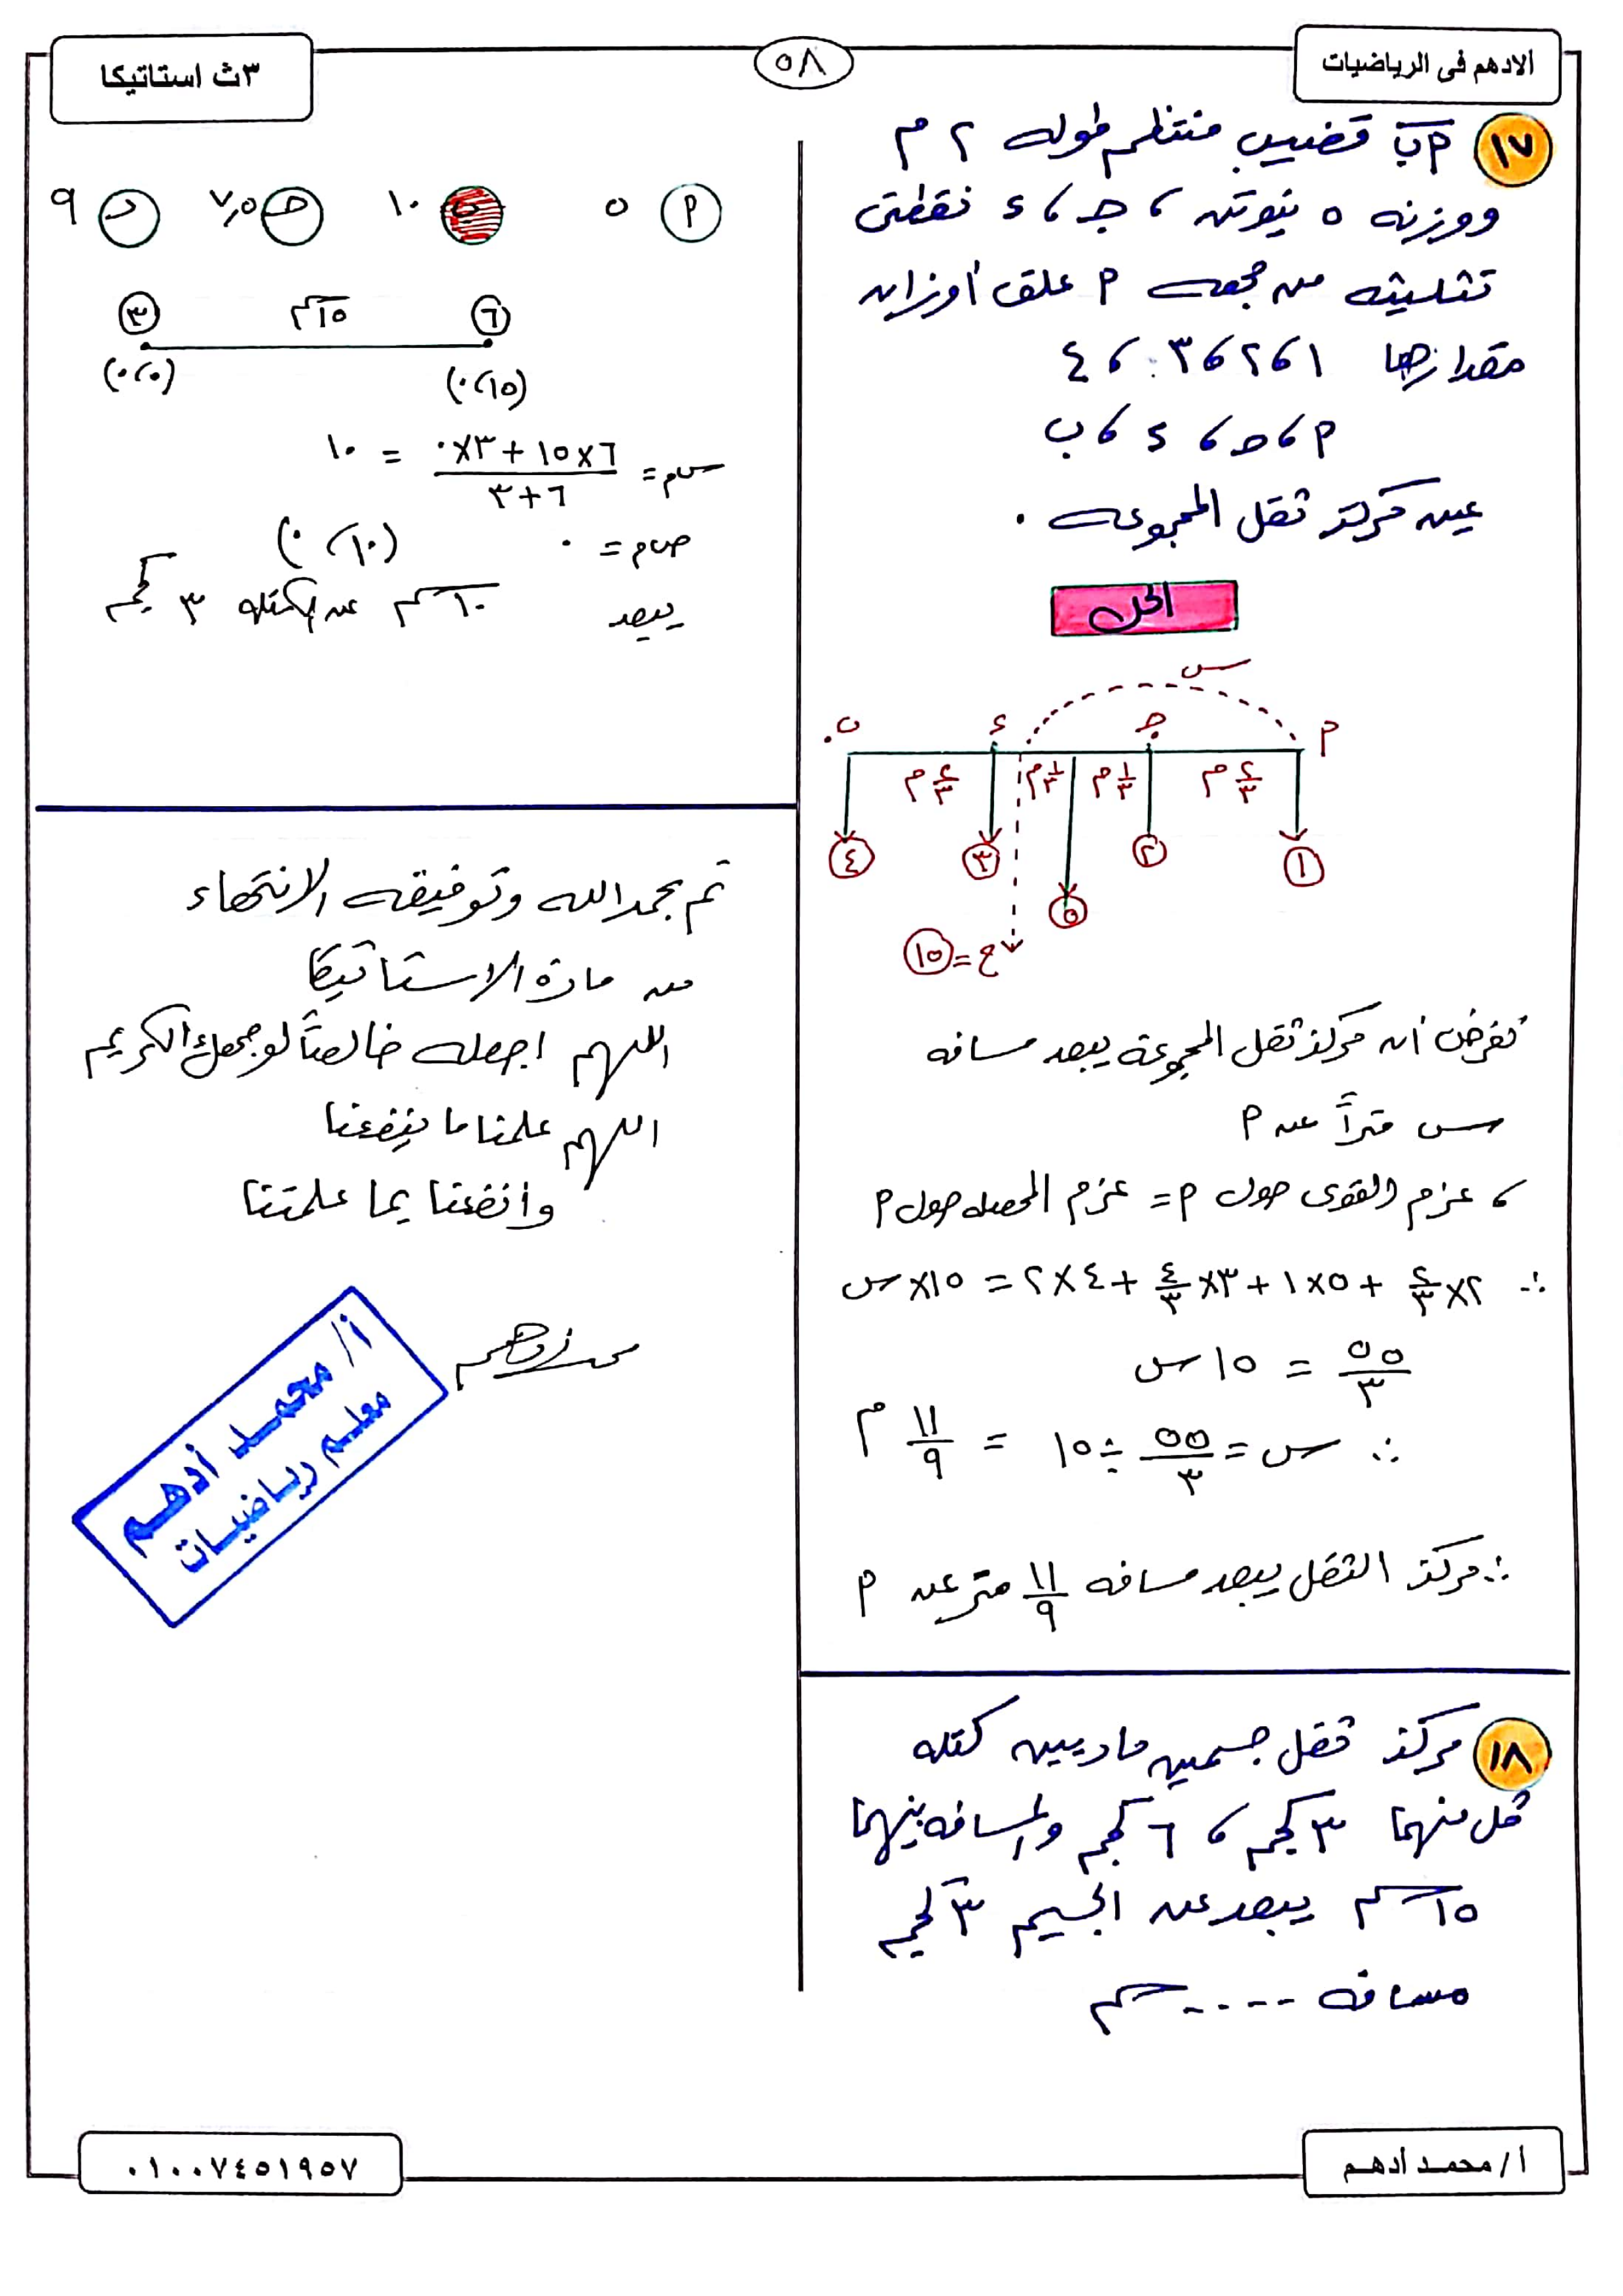 الادهم فى الرياضيات
٥٨
٣ث استاتيكا
١٧ أب قضيب منتظم طوله ٢ م
ووزنه ٥ نيوتن ، جـ ، ء نقطتى
تثليثه من جهة أ علق أوزان
مقدارها ١ ، ٢ ، ٣ ، ٤
أ ، جـ ، ء ، ب
عين مركز ثقل المجموعة .
الحل
س
ب ء جـ أ
٢/٣ م ١/٣ م ١/٣ م ٢/٣ م
٤ ٣ ٥ ٢ ١
ح = ١٥
نفرض أن مركز ثقل المجموعة يبعد مسافة
س متراً عن أ
، عزم القوى حول أ = عزم المحصلة حول أ
∴ ٢×٢/٣ + ٥×١ + ٣×٤/٣ + ٤×٢ = ١٥×س
٥٥/٣ = ١٥ س
∴ س = ٥٥/٣ ÷ ١٥ = ١١/٩ م
∴ مركز الثقل يبعد مسافة ١١/٩ متر عن أ
١٨ مركز ثقل جسمين ماديين كتلة
كل منهما ٣ كجم ، ٦ كجم والمسافة بينهما
١٥ سم يبعد عن الجسيم ٣ كجم
مسافة ..... سم
أ ٥ ب ١٠ جـ ٧,٥ د ٩
٣ ١٥ سم ٦
(٠،٠) (٠،١٥)
س م = ٦×١٥ + ٣×٠ / ٦+٣ = ١٠
ص م = ٠ (١٠ ، ٠)
يبعد ١٠ سم عن الكتلة ٣ كجم
تم بحمد الله وتوفيقه الانتهاء
من مادة الاستاتيكا
اللهم اجعله خالصاً لوجهك الكريم
اللهم علمنا ما ينفعنا
وانفعنا بما علمتنا
أ/ محمد أدهم
معلم رياضيات
أ/ محمد أدهم
٠١٠٠٧٤٥١٩٥٧